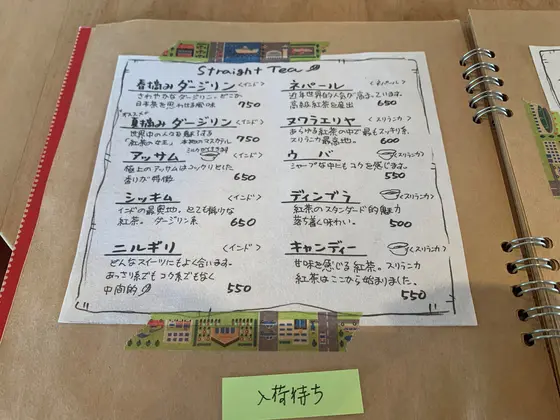 Straight Tea
春摘みダージリン <インド>
さわやかなダージリン
日本茶を思わせる風味 750
オススメ!
夏摘みダージリン <インド>
世界中の人々を魅了する
「紅茶の女王」 本物のマスカテル
ミルクができます 750
アッサム <インド>
極上のアッサムはコックリとした
香りが特徴 650
シッキム <インド>
インドの最奥地。とても稀少な
紅茶。ダージリン系 650
ニルギリ <インド>
どんなスイーツにもよく合います。
あっさり系でもコク系でもなく
中間的 550
ネパール <ネパール>
近年世界的に人気が高まっています。
高級紅茶を産出 650
ヌワラエリヤ <スリランカ>
あらゆる紅茶の中で最もスッキリ系
スリランカ最高地。 600
ウバ <スリランカ>
シャープな中にもコクを感じます。
550
ディンブラ <スリランカ>
紅茶のスタンダード的魅力
落ち着く味わい。 500
キャンディー <スリランカ>
甘味を感じる紅茶。スリランカ
紅茶はここから始まりました。
550
入荷待ち